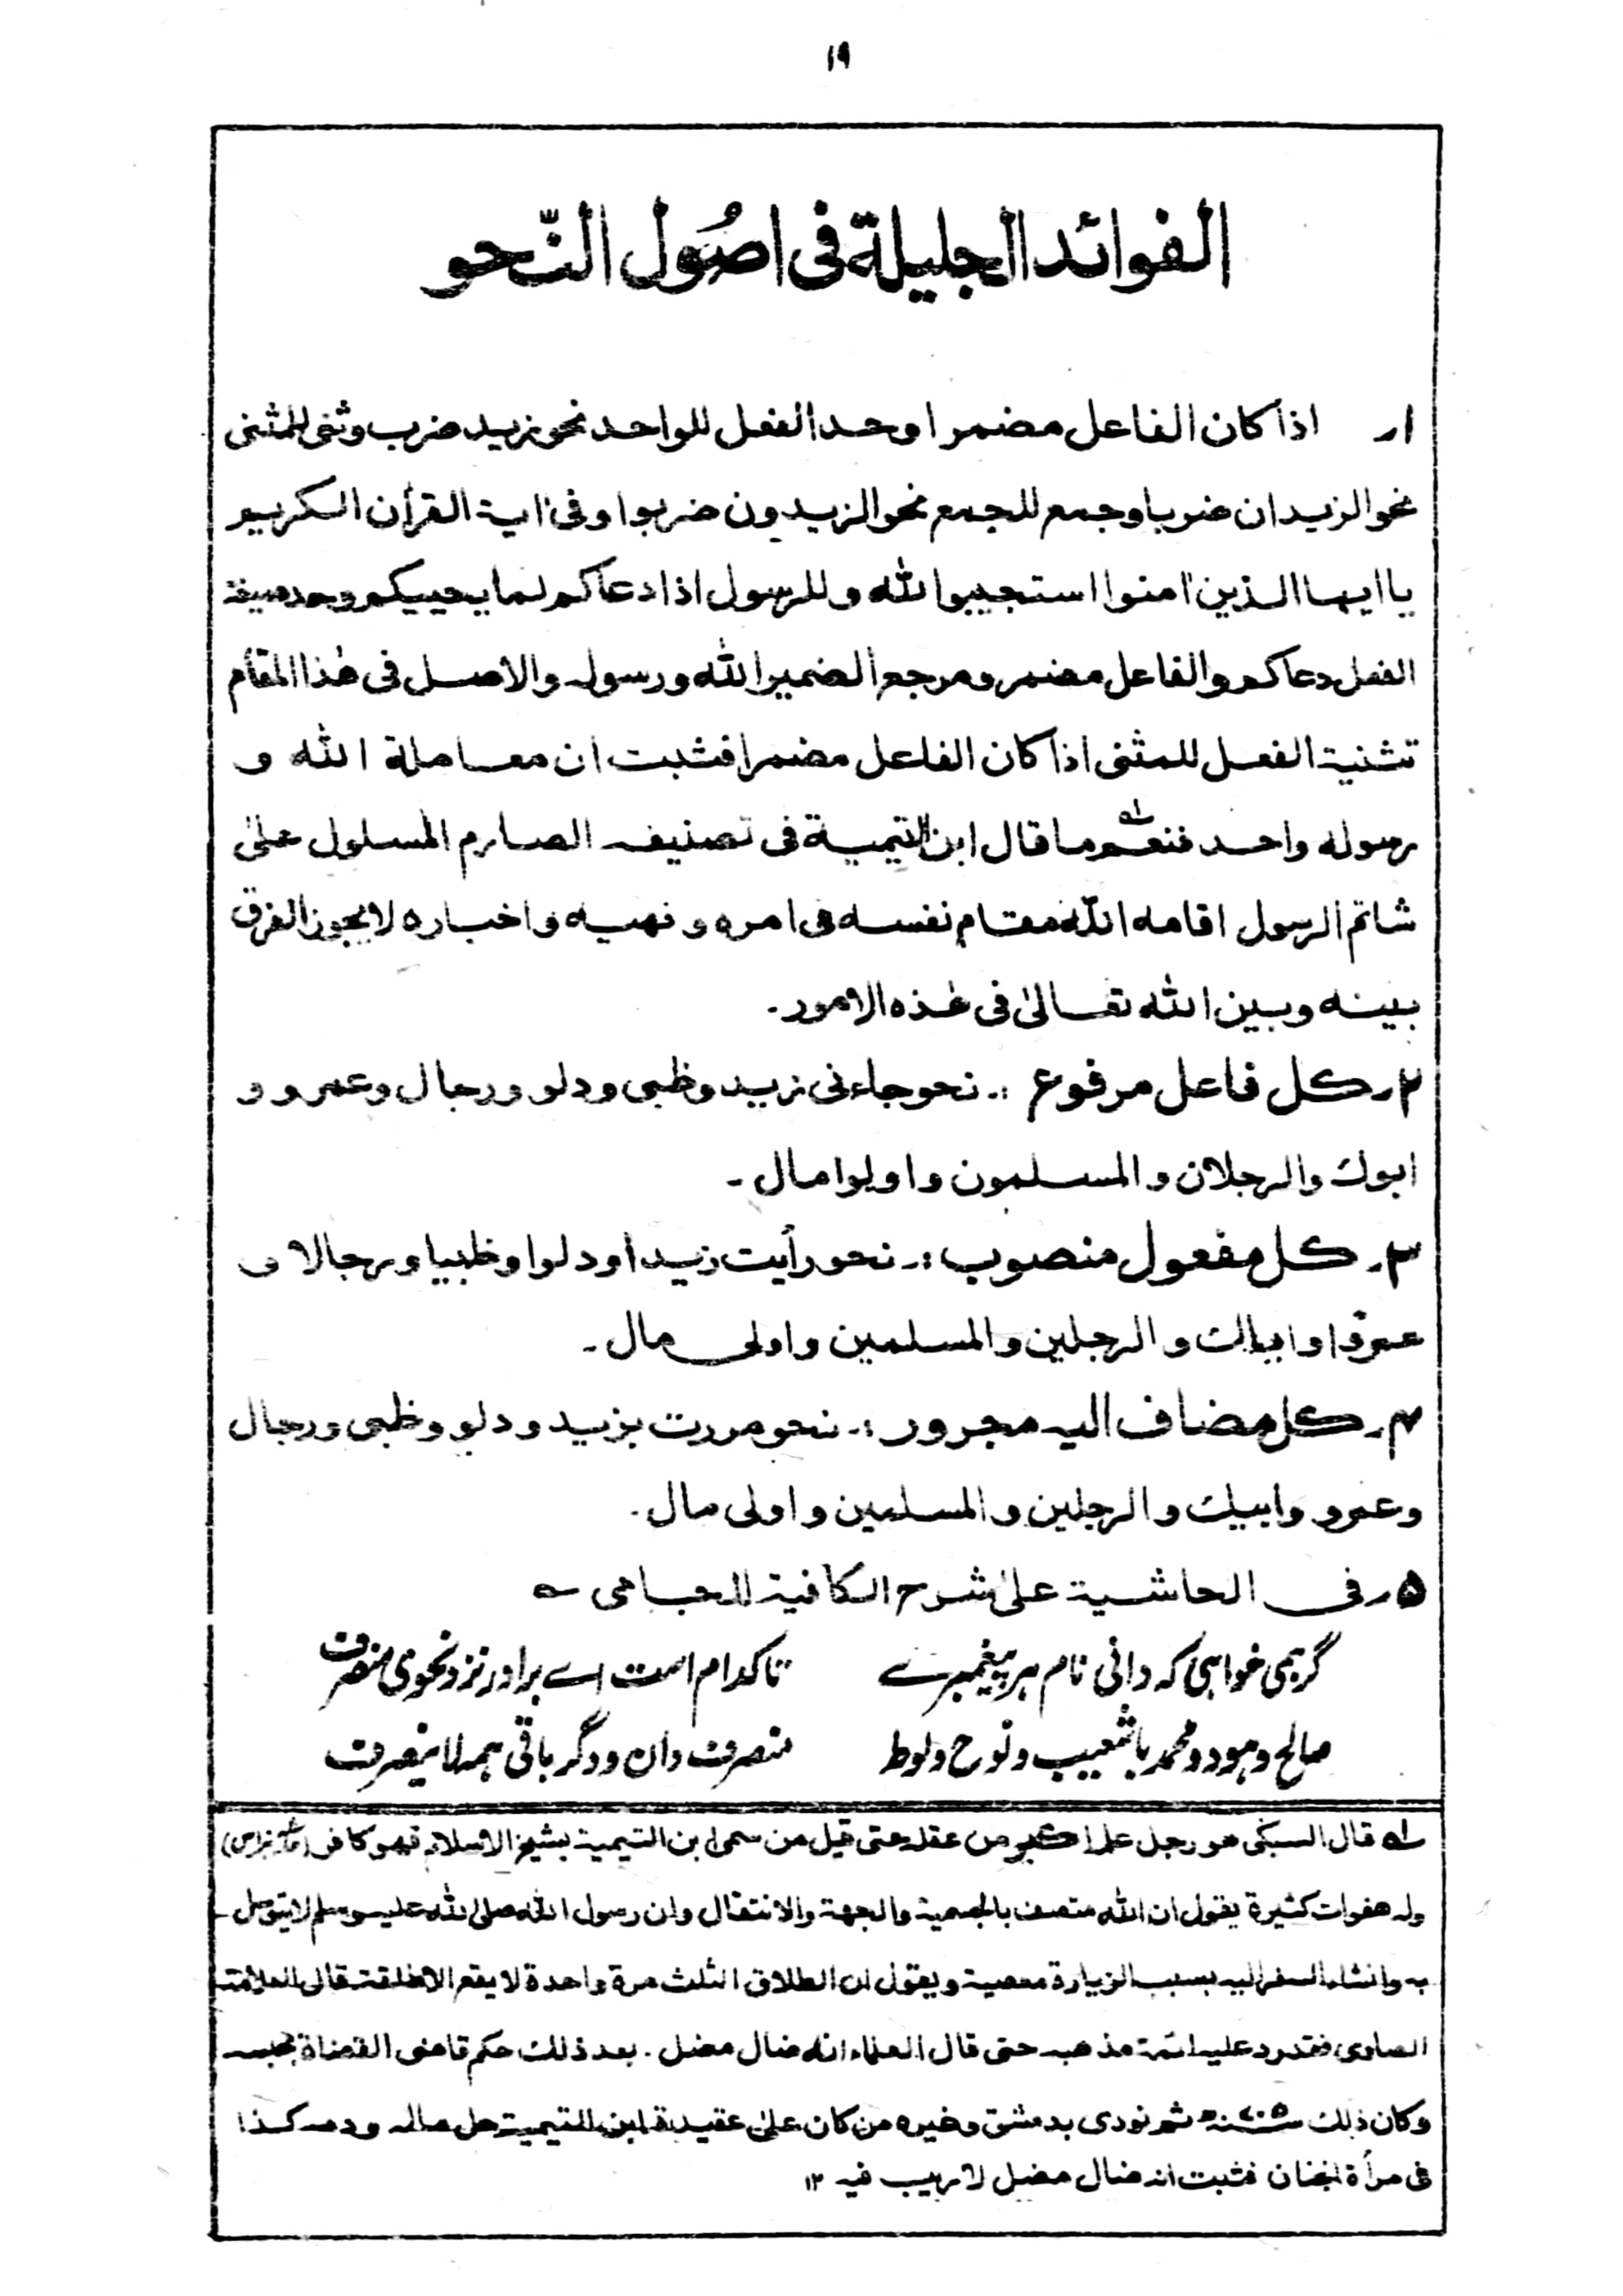 ١٩
الفوائد الجليلة فى اصُول النّحو
١ر اذا كان الفاعل مضمرا وحد الفعل للواحد نحو زيد ضرب وثنى للمثنى
نحو الزيدان ضربا وجمع للجمع نحو الزيدون ضربوا وفى اية القرأن الكريم
يا ايها الذين امنوا استجيبوا لله وللرسول اذا دعاكم لما يحييكم وحد صيغة
الفعل دعاكم والفاعل مضمر ومرجع الضمير الله ورسوله والاصل فى هٰذا المقام
تثنية الفعل للمثنى اذا كان الفاعل مضمرا فثبت ان معاملة الله و
رسوله واحد فنعم ما قال ابن التيمية فى تصنيفه الصارم المسلول علىٰ
شاتم الرسول اقامه الله مقام نفسه فى امره و نهيه واخباره لا يجوز الفرق
بينه وبين الله تعالىٰ فى هٰذه الامور۔
٢ر كل فاعل مرفوع :۔ نحو جاءنى زيد وظبى ودلو ورجال وعمرو و
ابوك والرجلان والمسلمون واولوا مال ۔
٣ر كل مفعول منصوب :۔ نحو رأيت زيدا ودلوا وظبيا ورجالا و
عمروا واباك والرجلين والمسلمين واولى مال ۔
۴ر كل مضاف اليه مجرور :۔ نحو مررت بزيد ودلو وظبى ورجال
وعمرو وابيك والرجلين والمسلمين واولى مال ۔
۵ر فى الحاشية علىٰ شرح الكافية للجامى ؎
گر ہمی خواہی کہ دانی نام ہر پیغمبرے تا کدام است اے برادر نزد نحوی منصرف
صالح و ہود و محمد با شعیب و نوح و لوط منصرف دان و دگر باقی ہمہ لا ینصرف
لہ قال السبكى هو رجل علمه اكبر من عقله حتى قيل من سمى ابن التيمية بشيخ الاسلام فهو كافر
وله هفوات كثيرة يقول ان الله متصف بالجسمية والجهة والانتقال وان رسول الله صلى الله عليه وسلم لا يتوسل
به وانشاء السفر اليه بسبب الزيارة معصية ويقول ان الطلاق الثلث مرة واحدة لا يقع الا طلقة قال العلامة
الصاوى فقد رد عليه ائمة مذهبه حتى قال العلماء انه ضال مضل ۔ بعد ذلك حكم قاضى القضاة بحبسه
وكان ذلك سنه ٧٠۵ ثم نودى بدمشق وغيره من كان علىٰ عقيدة ابن التيمية حل ماله ودمه كذا
فى مرأة الجنان فثبت انه ضال مضل لا ريب فيه ١٢